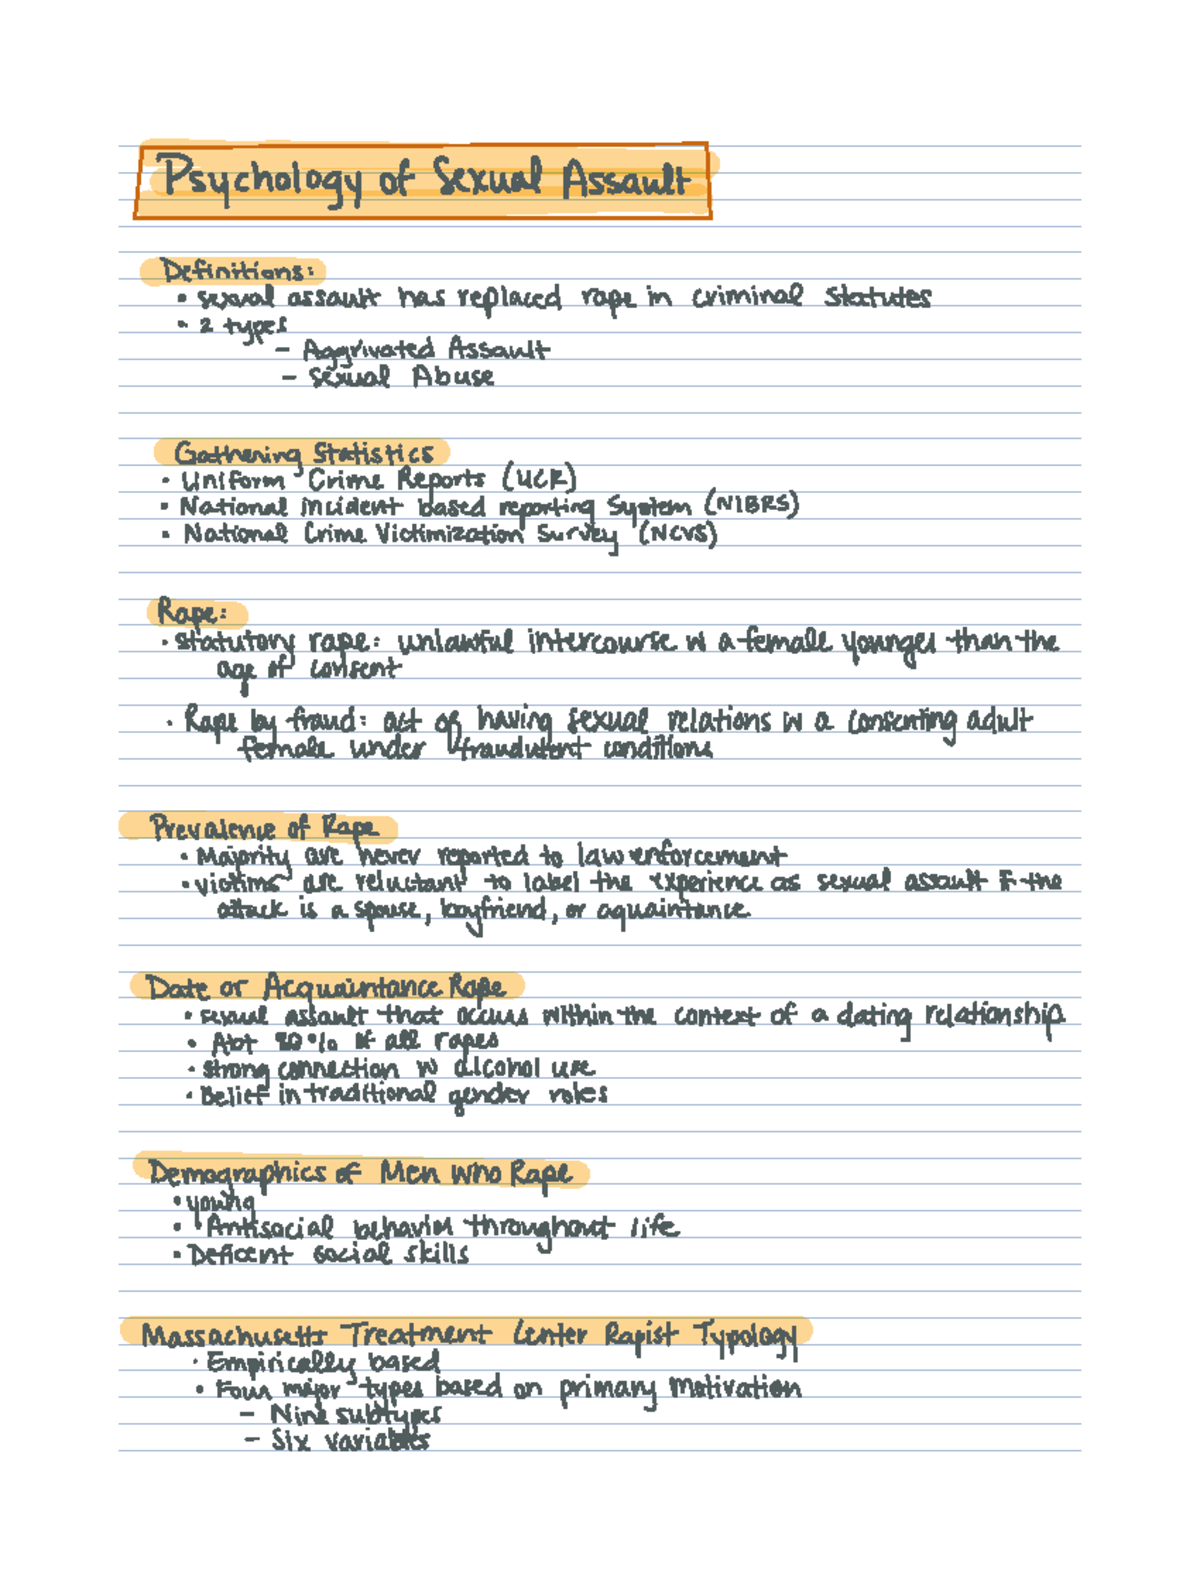 Psychology of Sexual Assault
Definitions:
• sexual assault has replaced rape in criminal statutes
• 2 types
– Aggrivated Assault
– Sexual Abuse
Gathering Statistics
• Uniform Crime Reports (UCR)
• National incident based reporting System (NIBRS)
• National Crime Victimization Survey (NCVS)
Rape:
• statutory rape: unlawful intercourse w a female younger than the
age of consent
• Rape by fraud: act of having sexual relations w a consenting adult
female under fraudulent conditions
Prevalence of Rape
• Majority are never reported to law enforcement
• victims are reluctant to label the experience as sexual assault if the
attack is a spouse, boyfriend, or aquaintance
Date or Acquaintance Rape
• sexual assault that occurs within the context of a dating relationship
• Abt % of all rapes
• strong connection w alcohol use
• Belief in traditional gender roles
Demographics of Men who Rape
• young
• Antisocial behavior throughout life
• Deficent social skills
Massachusetts Treatment Center Rapist Typology
• Empirically based
• Four major types based on primary motivation
– Nine subtypes
– Six variables